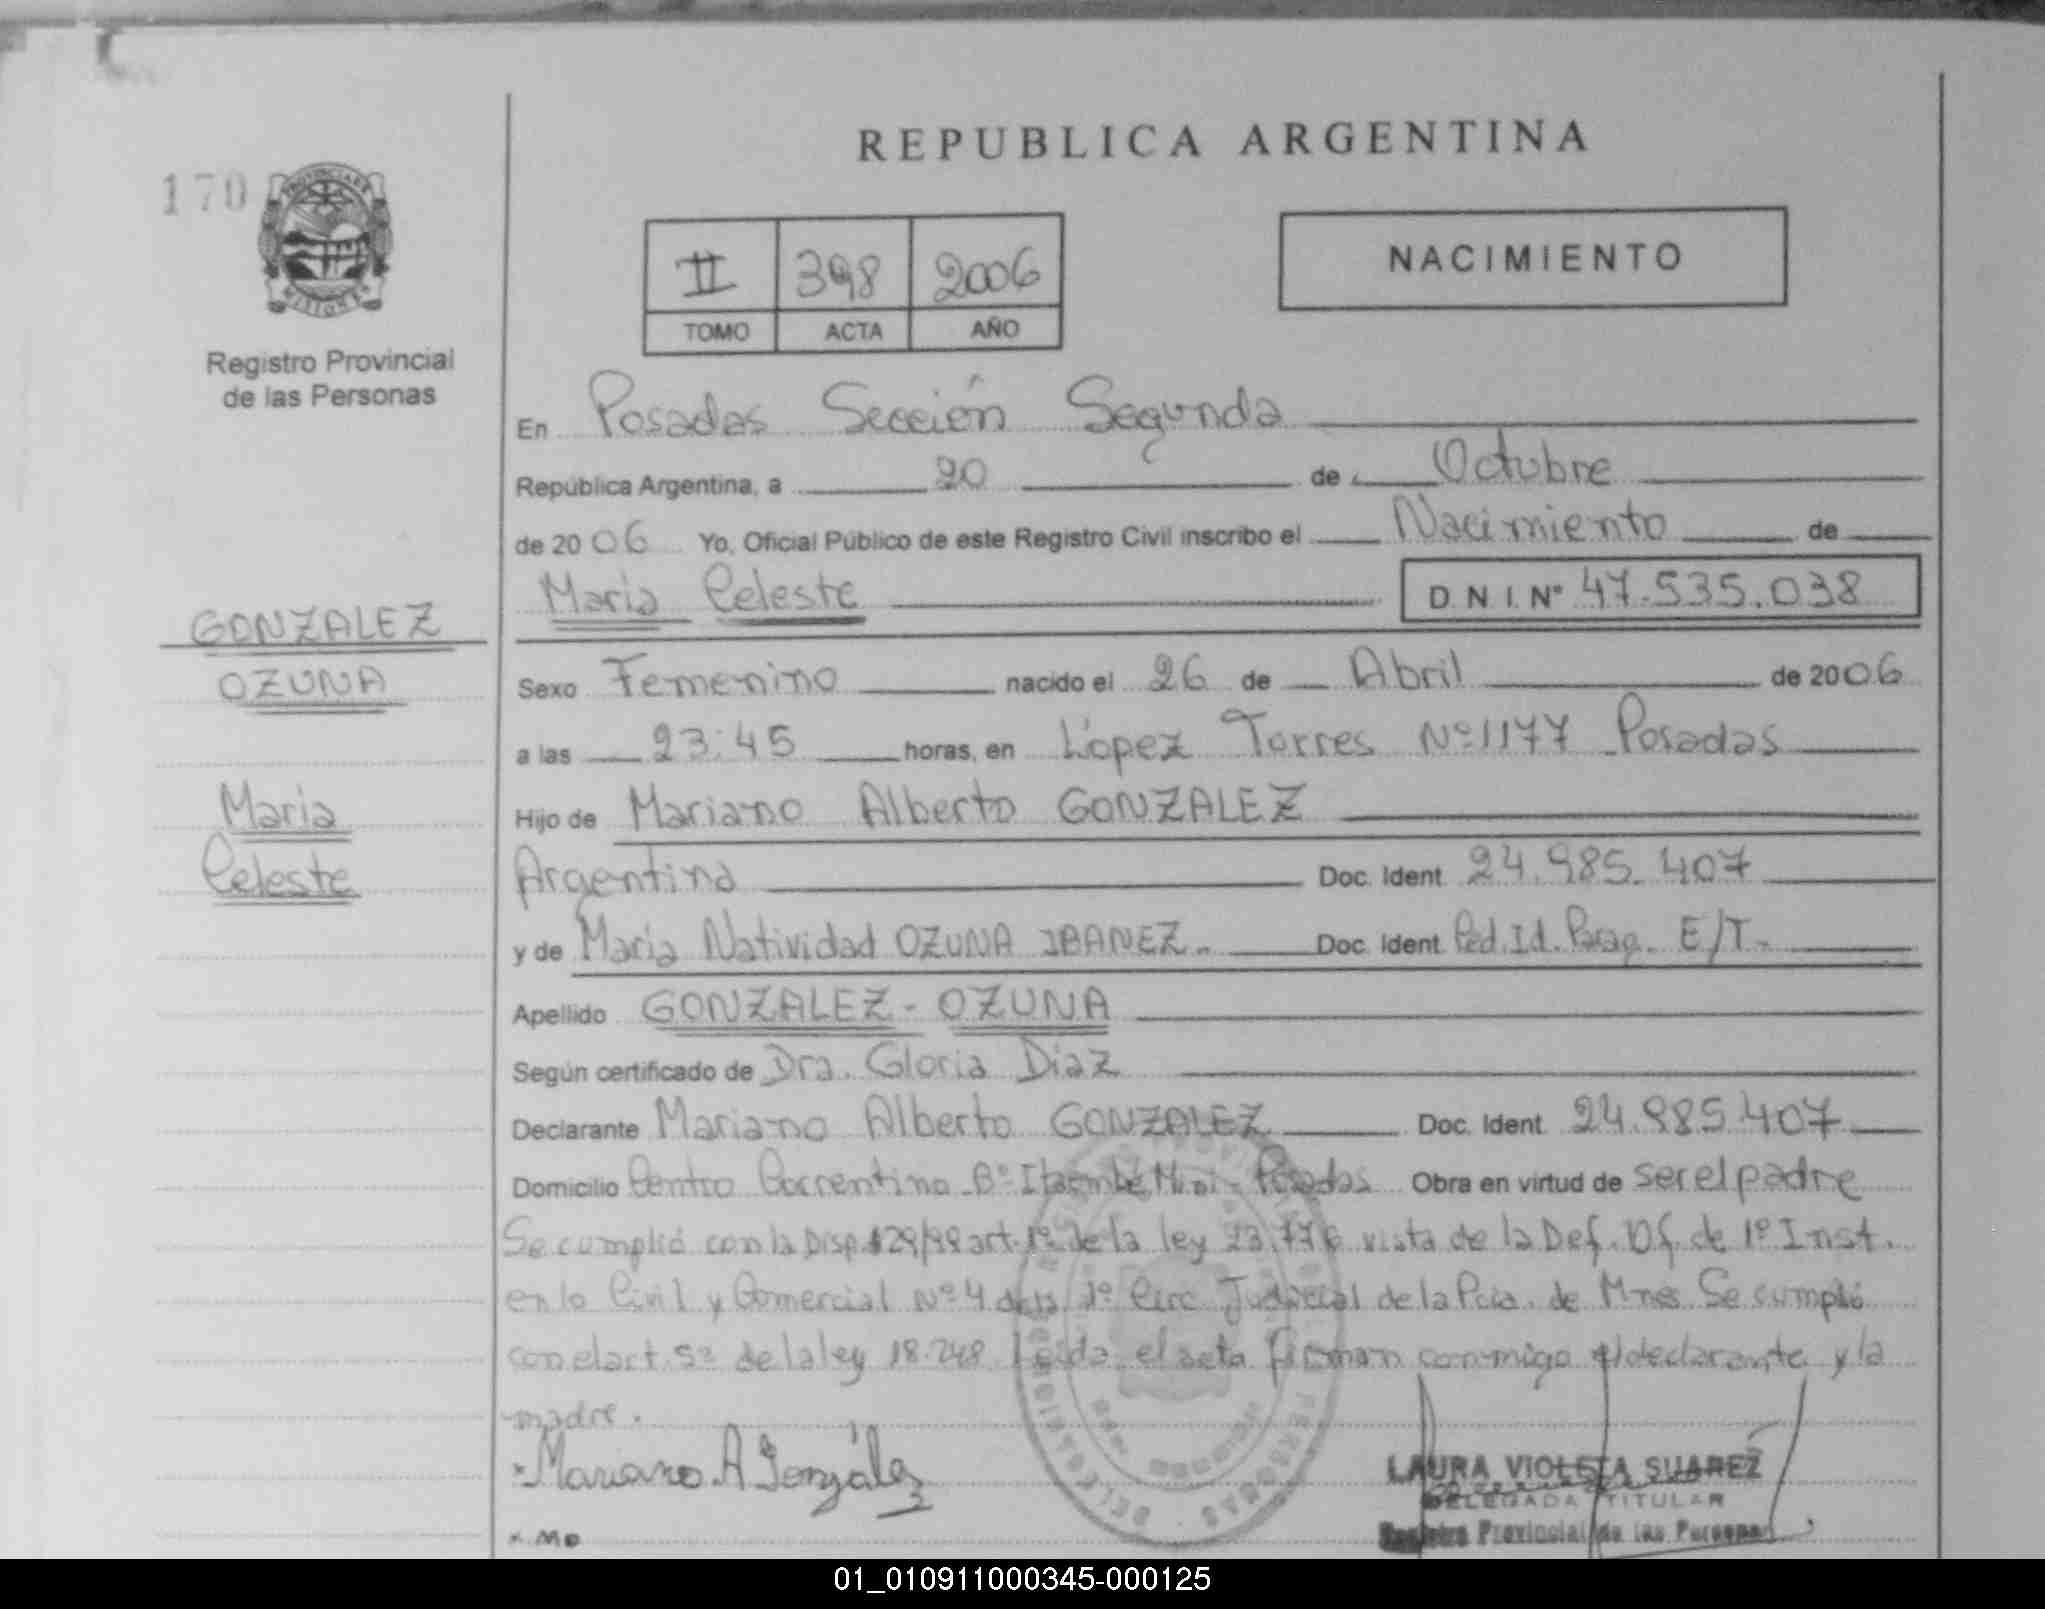 REPUBLICA ARGENTINA
170
PROVINCIA DE
MISIONES
Registro Provincial
de las Personas
II 398 2006
TOMO ACTA AÑO
NACIMIENTO
En Posadas Sección Segunda
República Argentina, a 20 de Octubre
de 2006 Yo, Oficial Público de este Registro Civil inscribo el Nacimiento de
Maria Celeste D.N.I. Nº 47.535.038
GONZALEZ
OZUNA
Maria
Celeste
Sexo Femenino nacido el 26 de Abril de 2006
a las 23:45 horas, en López Torres Nº 1177 Posadas
Hijo de Mariano Alberto GONZALEZ
Argentina Doc. Ident. 24.985.407
y de Maria Natividad OZUNA IBANEZ.- Doc. Ident. Ced. Id. Parag. E/T.-
Apellido GONZALEZ - OZUNA
Según certificado de Dra. Gloria Diaz
Declarante Mariano Alberto GONZALEZ Doc. Ident. 24.985.407
Domicilio Centro Correntino Bº Itaembé Mini - Posadas Obra en virtud de ser el padre
Se cumplió con la Disp. 829/99 art. 1º de la ley 23.776 vista de la Def. Of. de 1º Inst.
en lo Civil y Comercial Nº 4 de la 1º Circ Judicial de la Pcia. de Mnes. Se cumplió
con el art. 5º de la ley 18.248 Leida el acta firman conmigo el declarante y la
madre.
Mariano A González
LAURA VIOLETA SUAREZ
DELEGADA TITULAR
Registro Provincial de las Personas
× Mo
01_010911000345-000125